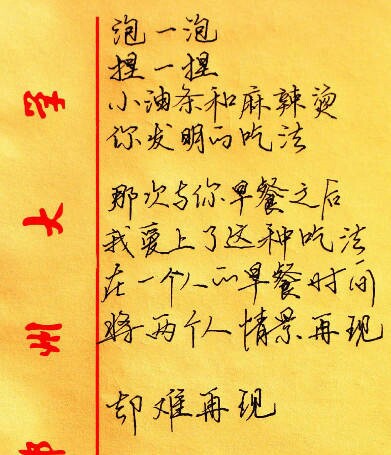 泡一泡
捏一捏
小油条和麻辣烫
你发明的吃法
那次与你早餐之后
我爱上了这种吃法
在一个人的早餐时间
将两个人情景再现
却难再现
州大学